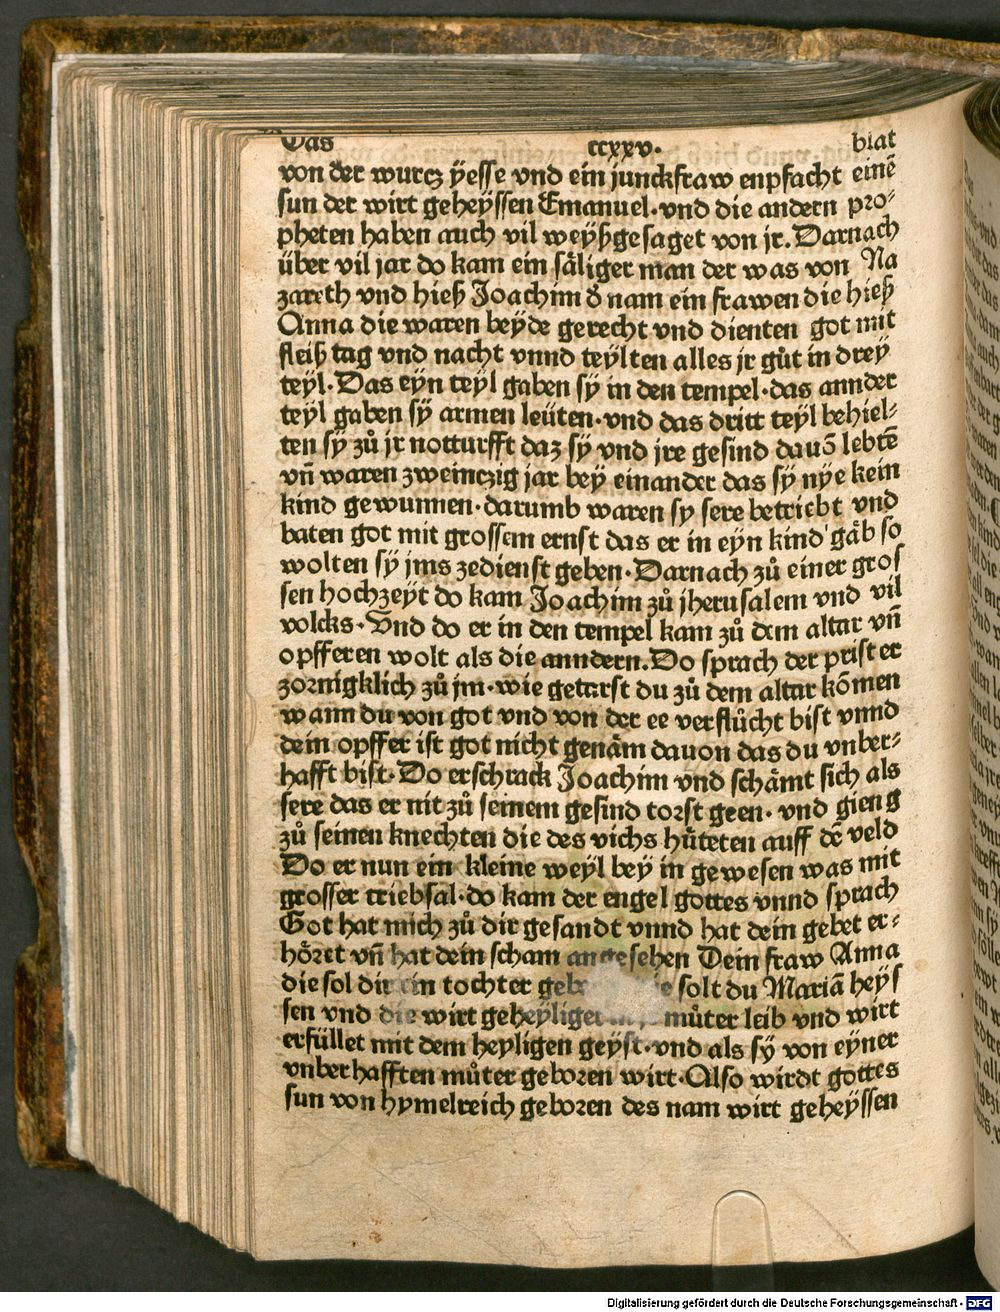 Das ccxxv. blat
von der wurcz ÿesse vnd ein junckfraw enpfacht einē
sun der wirt geheÿssen Emanuel·vnd die andern pro⸗
pheten haben auch vil weÿßgesaget von jr. Darnach
über vil jar do kam ein säliger man der was von Na
zareth vnd hieß Joachim d̄ nam ein frawen die hieß
Anna die waren beÿde gerecht vnd dienten got mit
fleiß tag vnd nacht vnnd teÿlten alles jr gůt in dreÿ
teÿl·Das eÿn teÿl gaben sÿ in den tempel·das annder
teÿl gaben sÿ armen leüten·vnd das dritt teÿl behiel⸗
ten sÿ zů jr notturfft daz sÿ vnd jre gesind dauō lebtē
vn̄ waren zweinczig jar beÿ einander das sÿ nÿe kein
kind gewunnen·darumb waren sy sere betriebt vnd
baten got mit grossem ernst das er in eÿn kind gäb so
wolten sÿ jms zedienst geben·Darnach zů einer gros
sen hochzeÿt do kam Joachim zů jherusalem vnd vil
volcks·Vnd do er in den tempel kam zů dem altar vn̄
opfferen wolt als die anndern.Do sprach der prister
zornigklich zů jm·wie getarst du zů dem altar kōmen
wann du von got vnd von der ee verflůcht bist vnnd
dein opffer ist got nicht genäm dauon das du vnber⸗
hafft bist·Do erschrack Joachim vnd schämt sich als
sere das er nit zů seinem gesind torst geen·vnd gieng
zů seinen knechten die des vichs hůteten auff dē veld
Do er nun ein kleine weÿl beÿ in gewesen was mit
grosser triebsal·do kam der engel gottes vnnd sprach
Got hat mich zů dir gesandt vnnd hat dein gebet er⸗
höret vn̄ hat dein scham angesehen Dein fraw Anna
die sol dir ein tochter solt du Mariā heÿs
sen vnd die wirt geheÿliget můter leib vnd wirt
erfüllet mit dem heyligen geÿst·vnd als sÿ von eÿner
vnberhafften můter geboren wirt·Also wirdt gottes
sun von hymelreich geboren des nam wirt geheÿssen
Digitalisierung gefördert durch die Deutsche Forschungsgemeinschaft - DFG